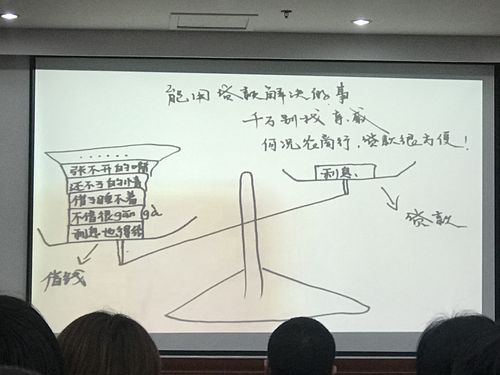 能用贷款解决的事
千万别找亲戚
何况农商行,贷款很方便!
......
张不开的嘴
还不了的情
借了睡不着
不借很gan ga
利息也得给
借钱
利息、
贷款